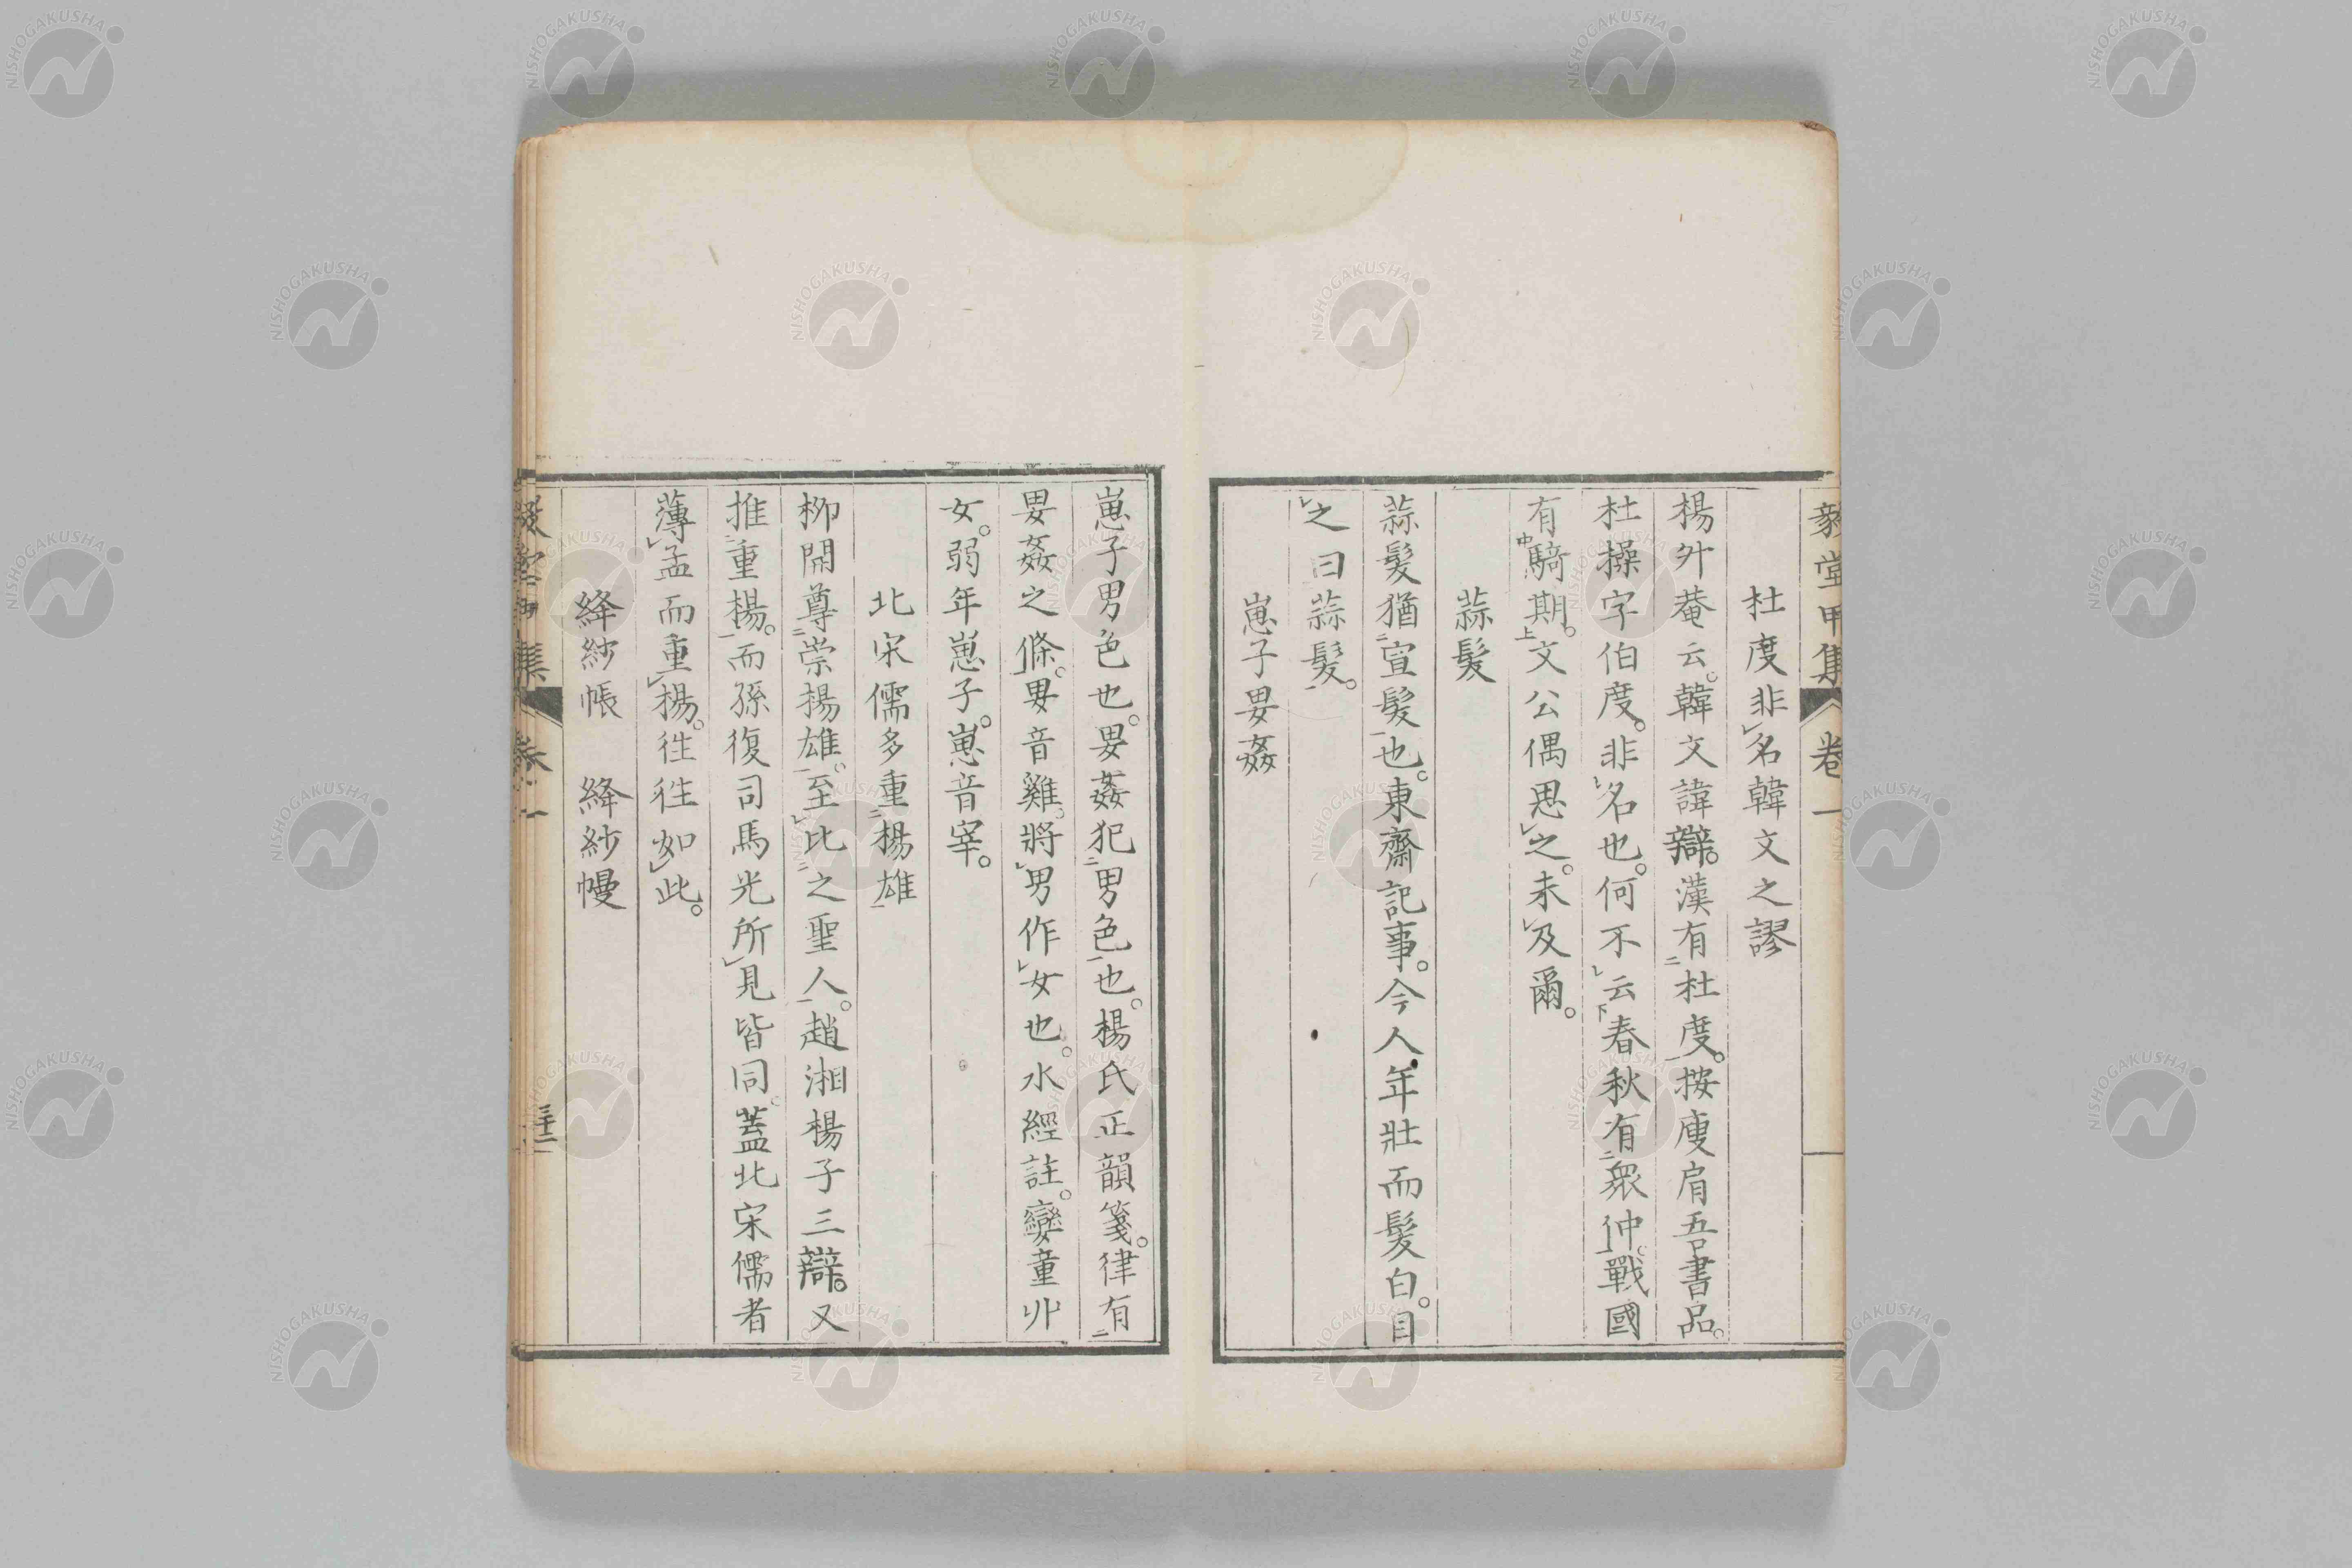 毅堂甲集 卷一
杜度非名韓文之謬
楊升菴云。韓文諱辯。漢有杜度。按庾肩吾書品。
杜操字伯度。非名也。何不云春秋有衆仲。戰國
有騎期。文公偶思之。未及爾。
蒜髮
蒜髮猶宣髮也。東齋記事。今人年壯而髮白。目
之曰蒜髮。
崽子㚻姦
崽子男色也。㚻姦犯男色也。楊氏正韻箋。律有
㚻姦之條。㚻音雞。將男作女也。水經註。孌童丱
女。弱年崽子。崽音宰。
北宋儒多重楊雄
柳開尊崇楊雄。至比之聖人。趙湘楊子三辯。又
推重楊。而孫復司馬光所見皆同。蓋北宋儒者
薄孟而重楊。往往如此。
絳紗帳 絳紗幔
毅堂甲集 卷一 三十二
NISHOGAKUSHA